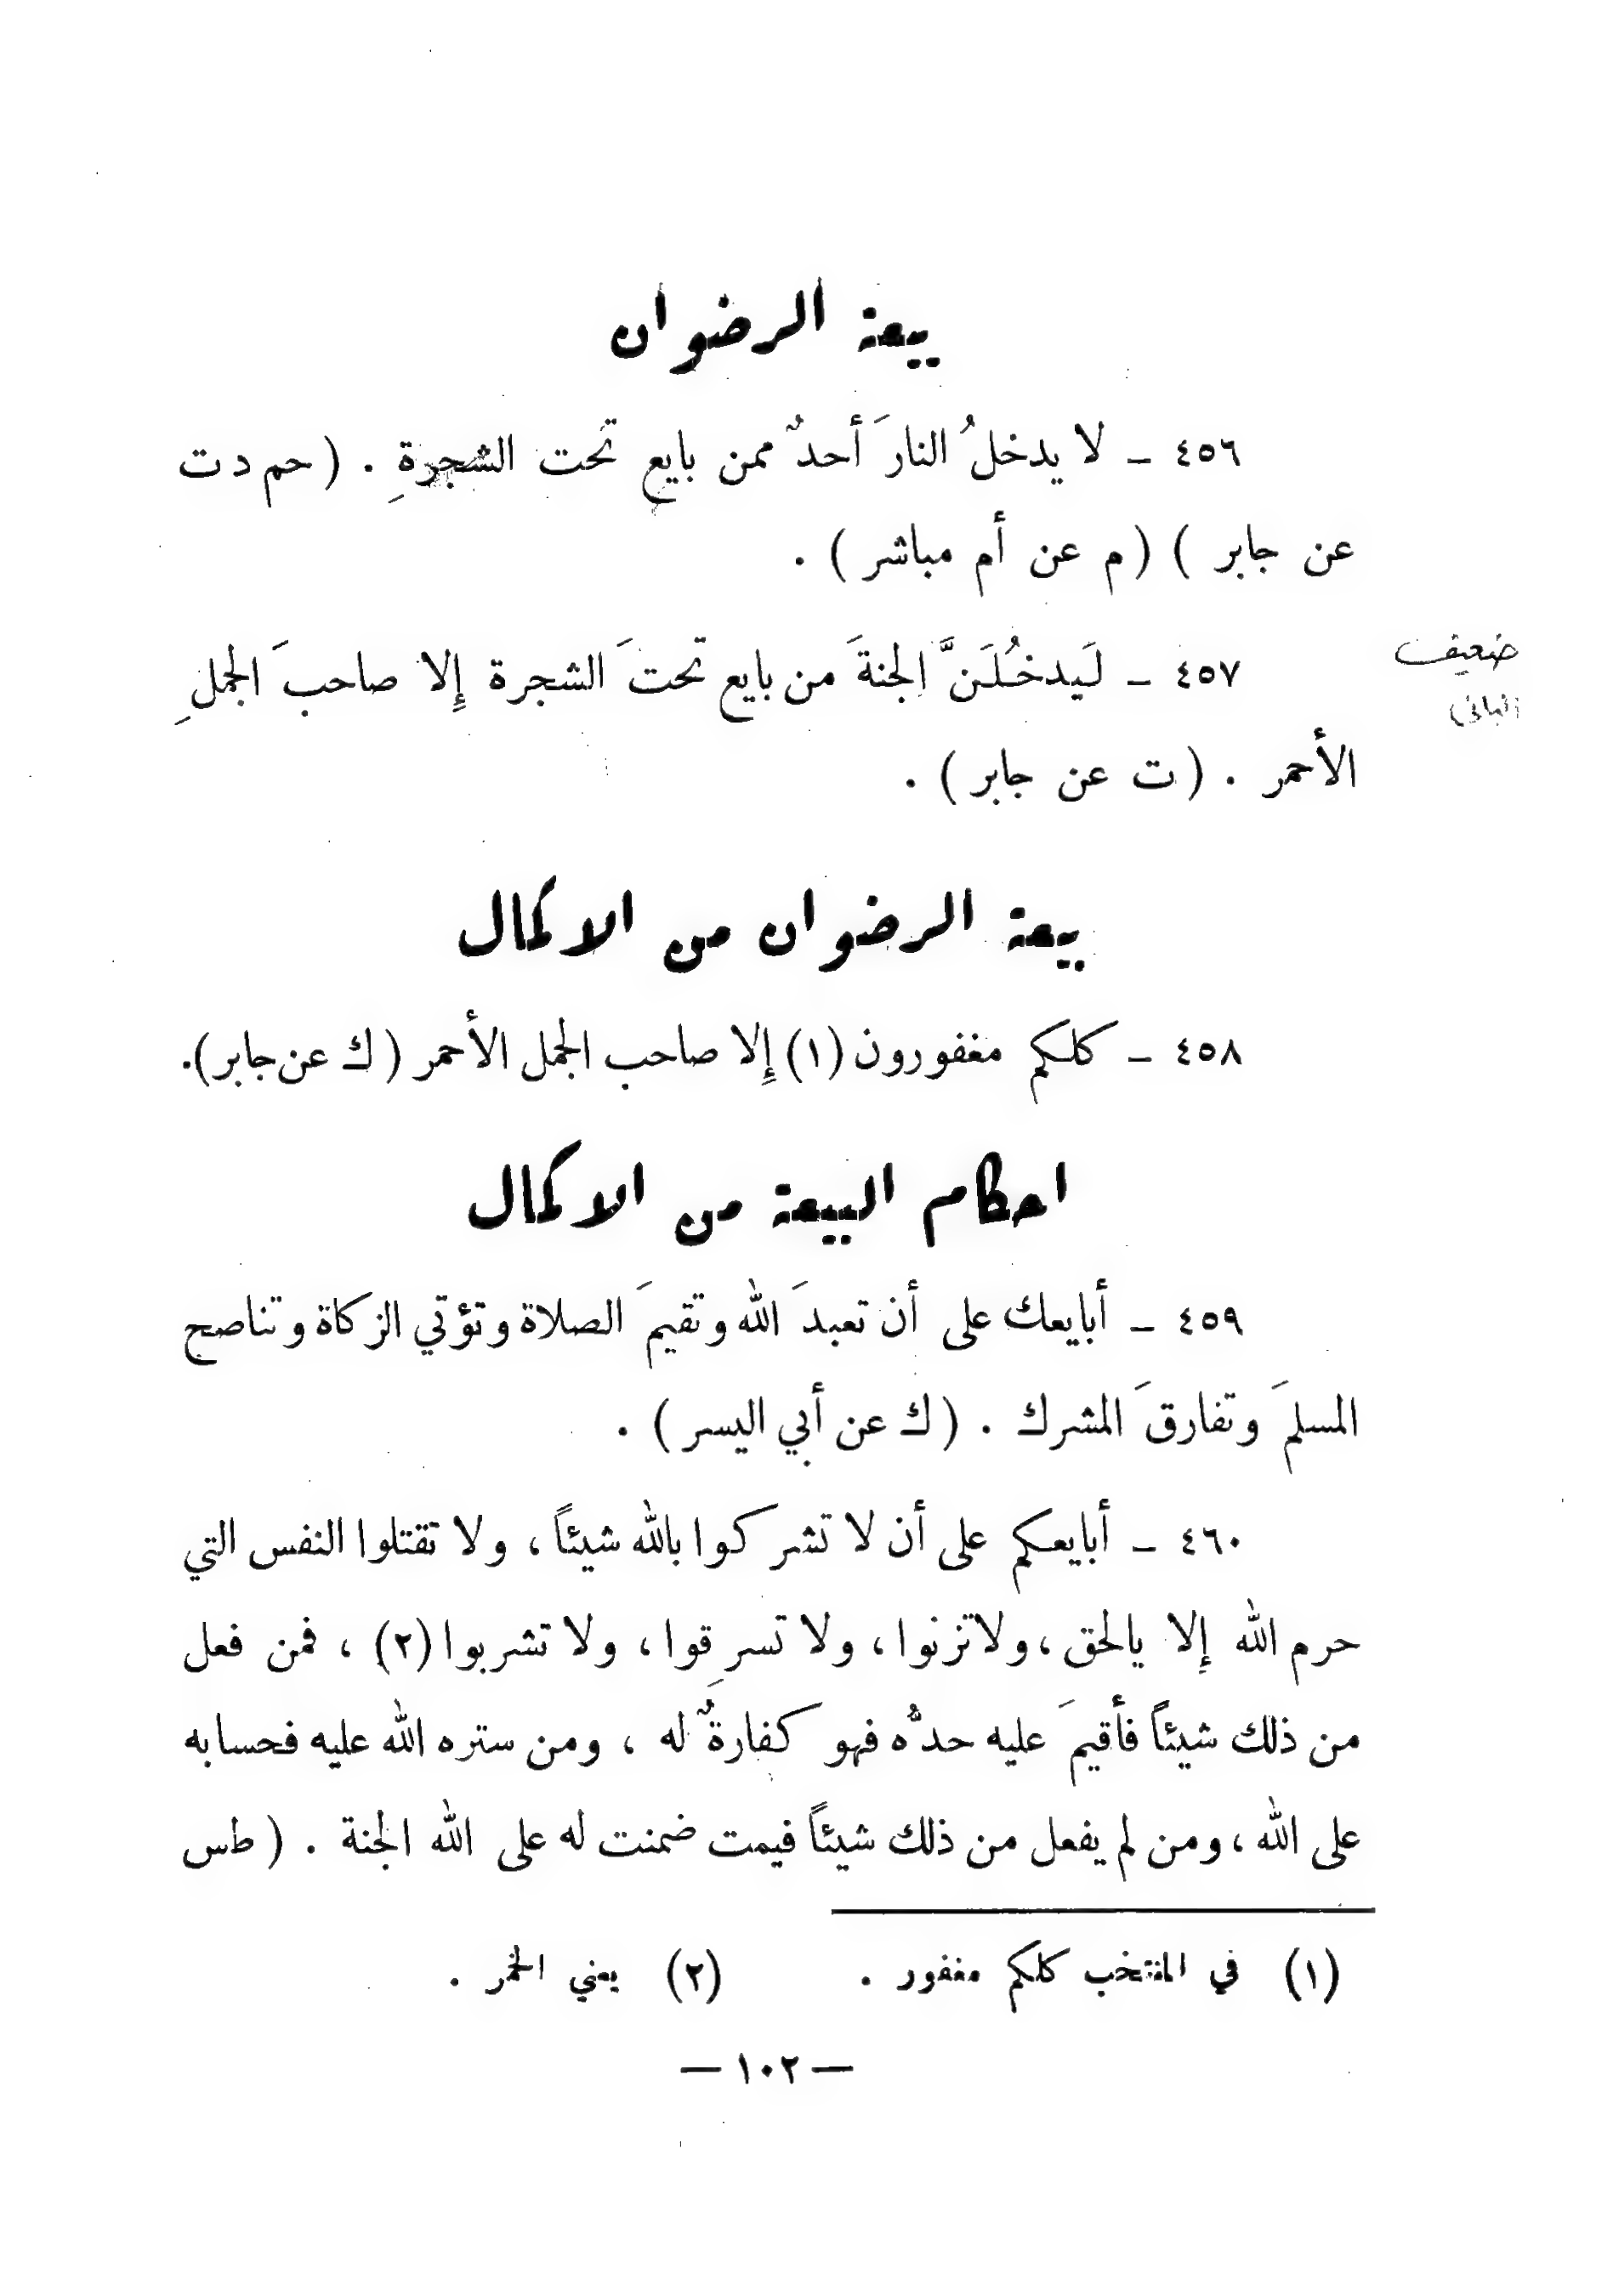 بيعة الرضوان
٤٥٦ ـ لا يدخلُ النارَ أحدٌ ممن بايع تحت الشجرةِ . ( حم د ت
عن جابر ) ( م عن أم مباشر ) .
٤٥٧ ـ لَيدخُلَنَّ الجنةَ من بايع تحتَ الشجرة إِلا صاحبَ الجملِ
ضعيف
البانی)
الأحمر . ( ت عن جابر ) .
بيعة الرضوان من الاكمال
٤٥٨ ـ كلكم مغفورون (١) إِلا صاحب الجمل الأحمر ( ك عن جابر ).
احكام البيعة من الاكمال
٤٥٩ ـ أبايعك على أن تعبدَ الله وتقيمَ الصلاة وتؤتي الزكاة وتناصح
المسلمَ وتفارقَ المشرك . ( ك عن أبي اليسر ) .
٤٦٠ ـ أبايعكم على أن لا تشركوا بالله شيئاً ، ولا تقتلوا النفس التي
حرم الله إِلا بالحق ، ولا تزنوا ، ولا تسرِقوا ، ولا تشربوا (٢) ، فمن فعل
من ذلك شيئاً فأقيمَ عليه حدُّه فهو كفارةٌ له ، ومن ستره الله عليه فحسابه
على الله ، ومن لم يفعل من ذلك شيئاً فيمت ضمنت له على الله الجنة . ( طس
(١) في المنتخب كلكم مغفور . (٢) يعني الخمر .
— ١٠٢ —